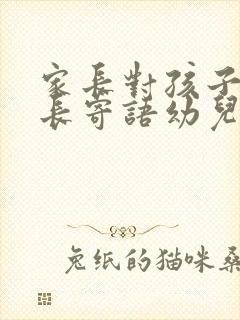 家長對孩子
長寄語幼兒
兔紙的猫咪桑